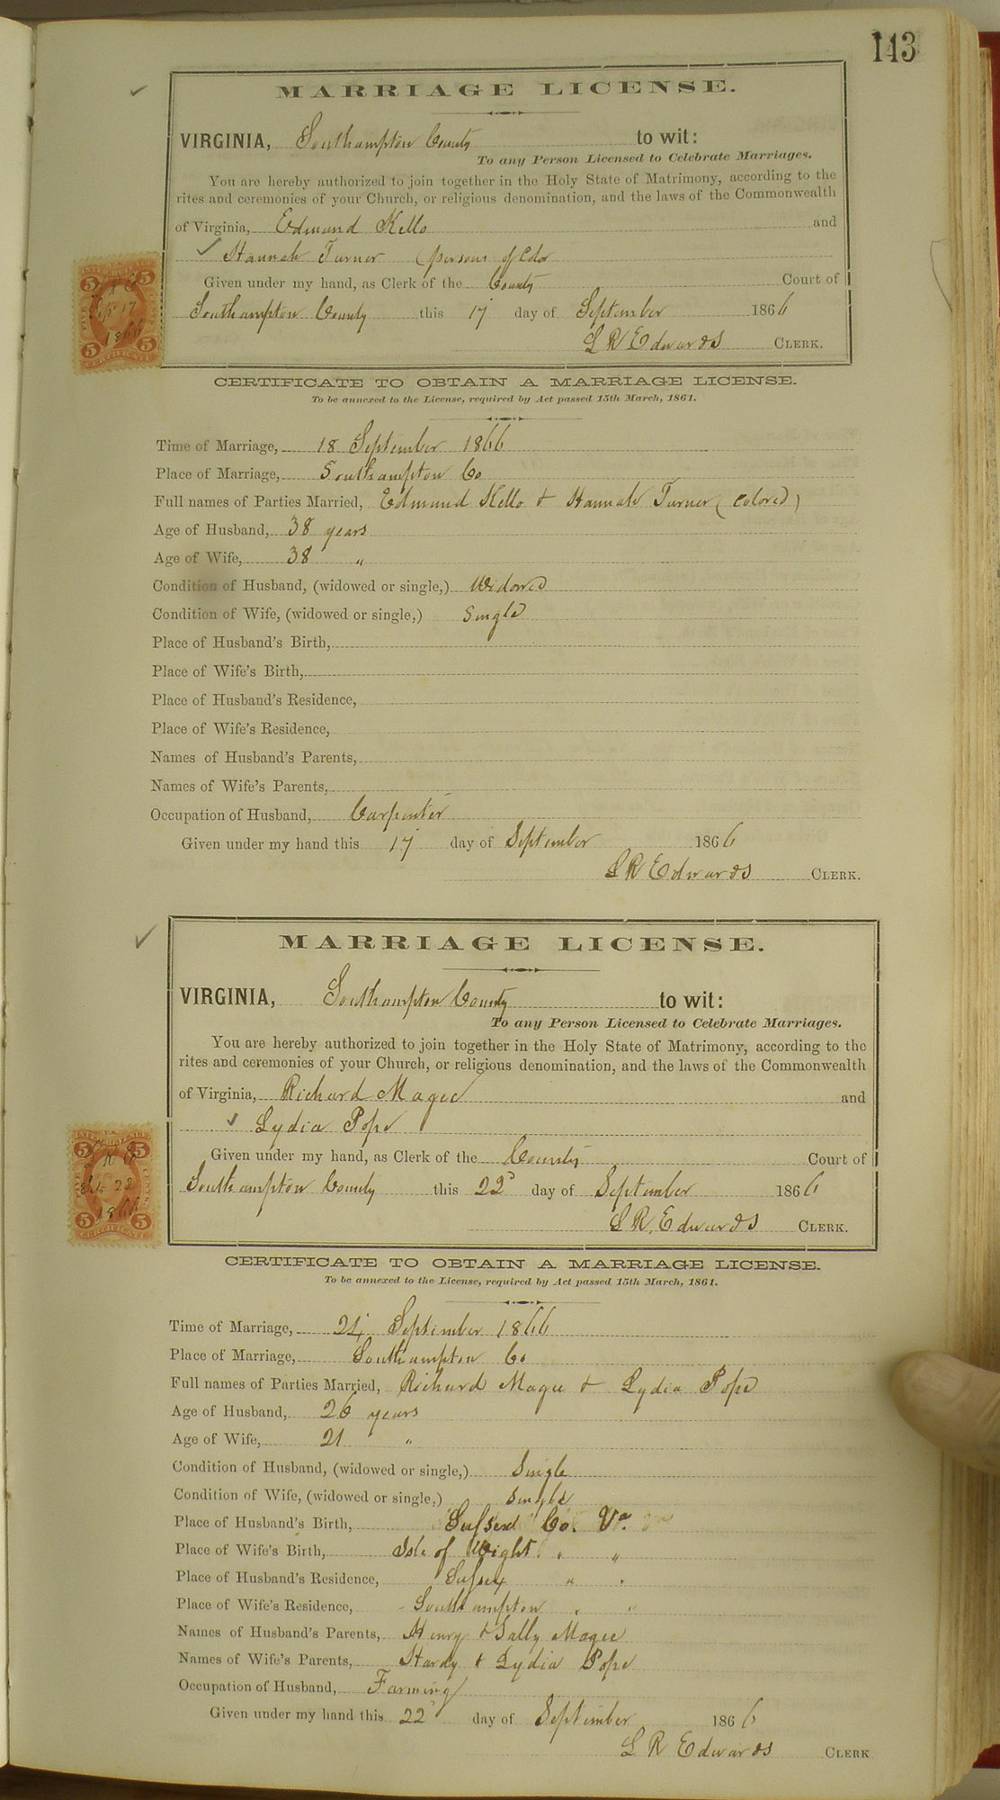 143
MARRIAGE LICENSE.
VIRGINIA, Southampton County to wit:
To any Person Licensed to Celebrate Marriages.
You are hereby authorized to join together in the Holy State of Matrimony, according to the
rites and ceremonies of your Church, or religious denomination, and the laws of the Commonwealth
of Virginia, Edmund Kello and
Hannah Turner (persons of Color
Given under my hand, as Clerk of the County Court of
Southampton County this 17 day of September 1866
L R Edwards CLERK.
CERTIFICATE TO OBTAIN A MARRIAGE LICENSE.
To be annexed to the License, required by Act passed 15th March, 1861.
Time of Marriage, 18 September 1866
Place of Marriage, Southampton Co
Full names of Parties Married, Edmund Kello & Hannah Turner (Colored)
Age of Husband, 38 years
Age of Wife, 38 "
Condition of Husband, (widowed or single,) Widowed
Condition of Wife, (widowed or single,) Single
Place of Husband's Birth,
Place of Wife's Birth,
Place of Husband's Residence,
Place of Wife's Residence,
Names of Husband's Parents,
Names of Wife's Parents,
Occupation of Husband, Carpenter
Given under my hand this 17 day of September 1866
L R Edwards CLERK.
MARRIAGE LICENSE.
VIRGINIA, Southampton County to wit:
To any Person Licensed to Celebrate Marriages.
You are hereby authorized to join together in the Holy State of Matrimony, according to the
rites and ceremonies of your Church, or religious denomination, and the laws of the Commonwealth
of Virginia, Richard Magee and
Lydia Pope
Given under my hand, as Clerk of the County Court of
Southampton County this 22d day of September 1866
L R. Edwards CLERK.
CERTIFICATE TO OBTAIN A MARRIAGE LICENSE.
To be annexed to the License, required by Act passed 15th March, 1861.
Time of Marriage, 24 September 1866
Place of Marriage, Southampton Co
Full names of Parties Married, Richard Magee & Lydia Pope
Age of Husband, 26 years
Age of Wife, 21 "
Condition of Husband, (widowed or single,) Single
Condition of Wife, (widowed or single,) Single
Place of Husband's Birth, Co. Va.
Place of Wife's Birth, Isle of Wight " "
Place of Husband's Residence, Sussex " "
Place of Wife's Residence, Southampton " "
Names of Husband's Parents, Henry & Sally Magee
Names of Wife's Parents, Hardy & Lydia Pope
Occupation of Husband, Farming
Given under my hand this 22 day of September 1866
L R Edwards CLERK